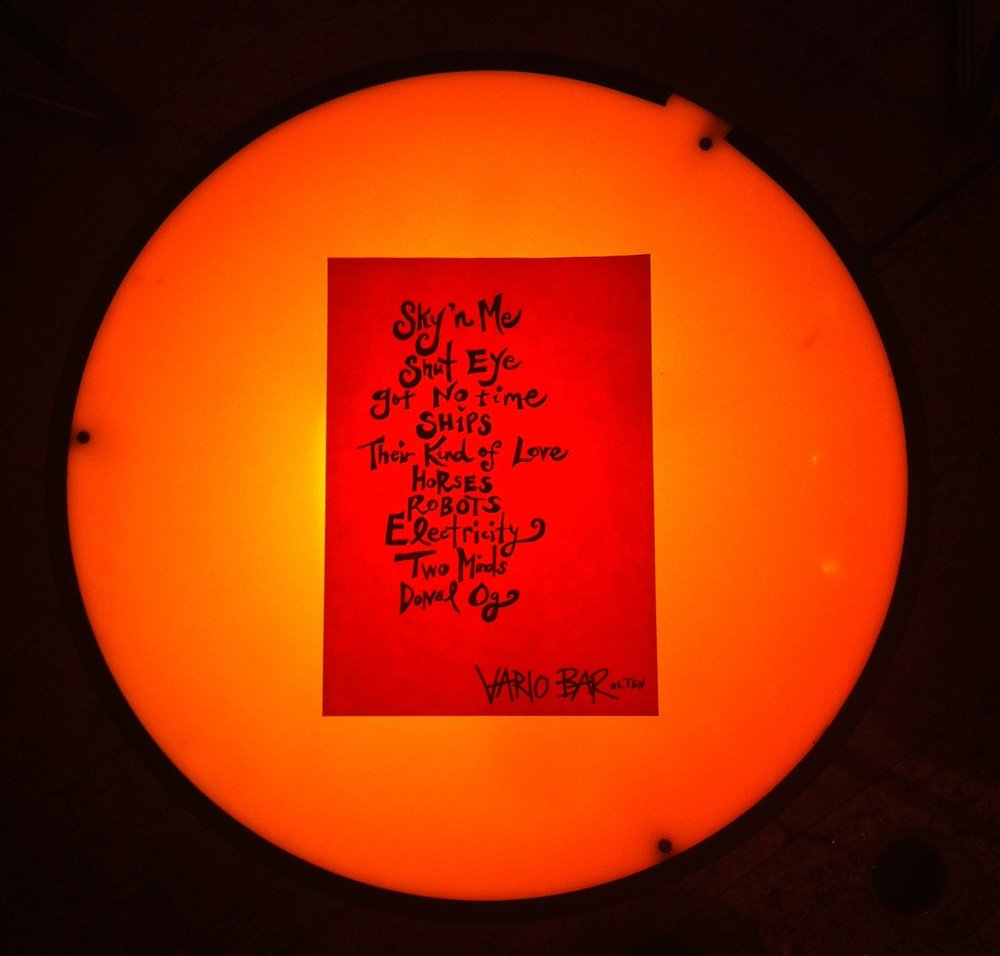 Sky'n Me
Shut Eye
got No time
SHiPS
Their Kind of Love
HoRSES
ROBOTS
Electricity
Two Minds
Donal Og
VARIO BAR OLTEN